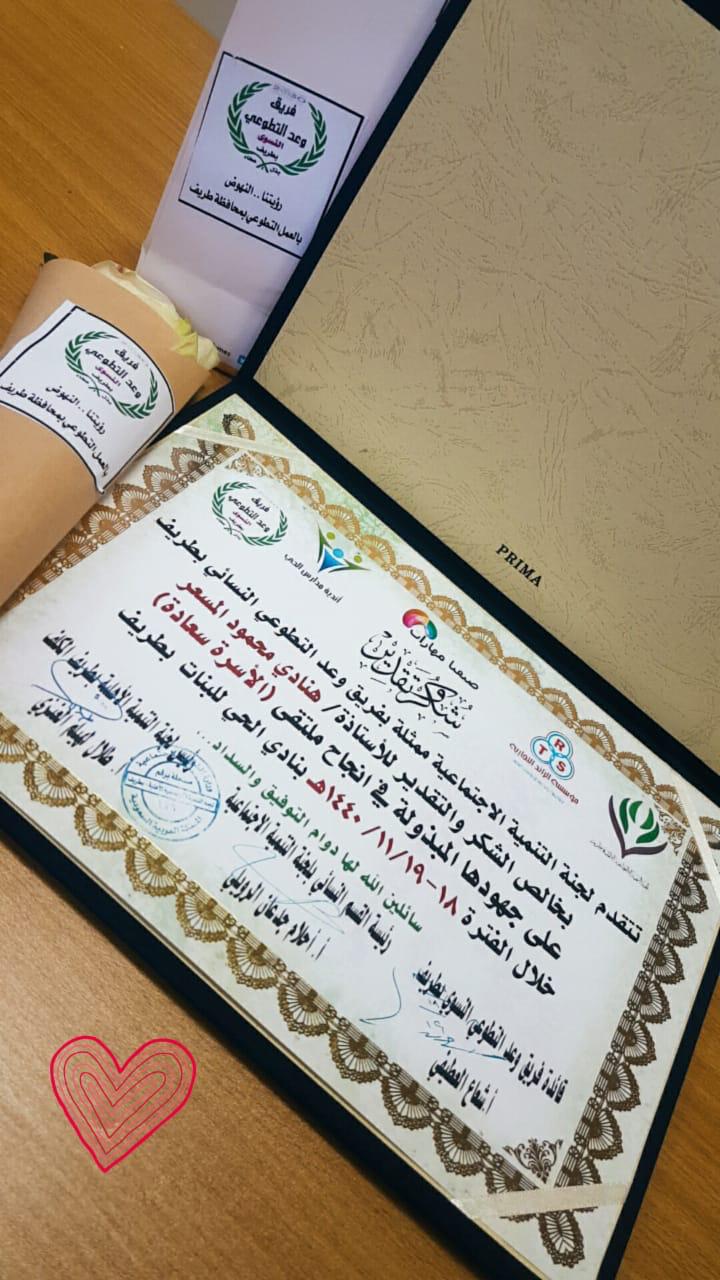 فريق
وعد التطوعي
النسوي
بطريف
رؤيتنا .. النهوض
بالعمل التطوعي بمحافظة طريف
فريق
وعد التطوعي
النسوي
بطريف
رؤيتنا .. النهوض
بالعمل التطوعي بمحافظة طريف
PRIMA
فريق
وعد التطوعي
النسوي
بطريف
أندية مدارس الحي
صيفنا مهارات
RTS
مؤسسة الرائد التجارية
شكر وتقدير
تتقدم لجنة التنمية الاجتماعية ممثلة بفريق وعد التطوعي النسائي بطريف
بخالص الشكر والتقدير للأستاذة/ هنادي محمود المسعر
على جهودها المبذولة في انجاح ملتقى (الأسرة سعادة)
خلال الفترة ١٨-١٩/ ١١/ ١٤٤٠هـ بنادي الحي للبنات بطريف
سائلين الله لها دوام التوفيق والسداد...
قائدة فريق وعد التطوعي النسوي بطريف
رئيسة القسم النسائي بلجنة التنمية الاجتماعية
أ. أحلام جدعان الرويلي
رئيس لجنة التنمية الأهلية بطريف المكلف
المملكة العربية السعودية